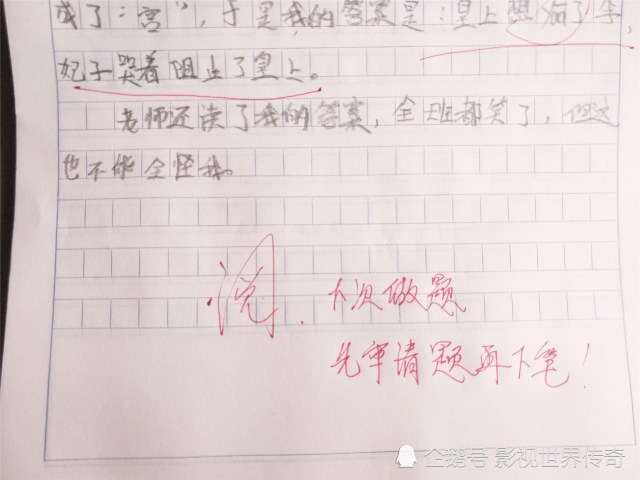 成了：宫”，于是我的答案是：皇上想病了李，
妃子哭着阻止了皇上。
老师还读了我的答案，全班都笑了，但这
也不能全怪我。
阅. 下次做题
先审清题再下笔！
企鹅号 影视世界传奇